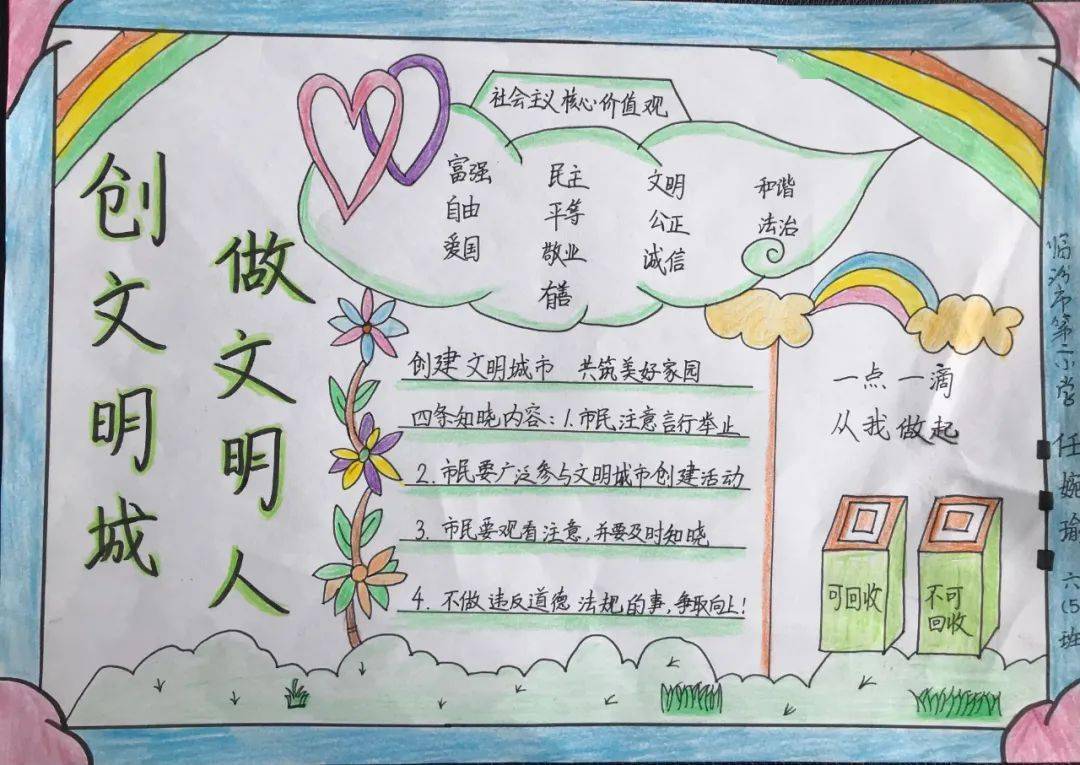 创文明城
做文明人
社会主义核心价值观
富强 民主 文明 和谐
自由 平等 公正 法治
爱国 敬业 诚信
友善
创建文明城市 共筑美好家园
四条知晓内容:1.市民注意言行举止
2.市民要广泛参与文明城市创建活动
3.市民要观看注意,并要及时知晓
4.不做违反道德法规的事,争取向上!
一点一滴
从我做起
可回收
不可
回收
临汾市第二小学 任婉瑜 六(5)班